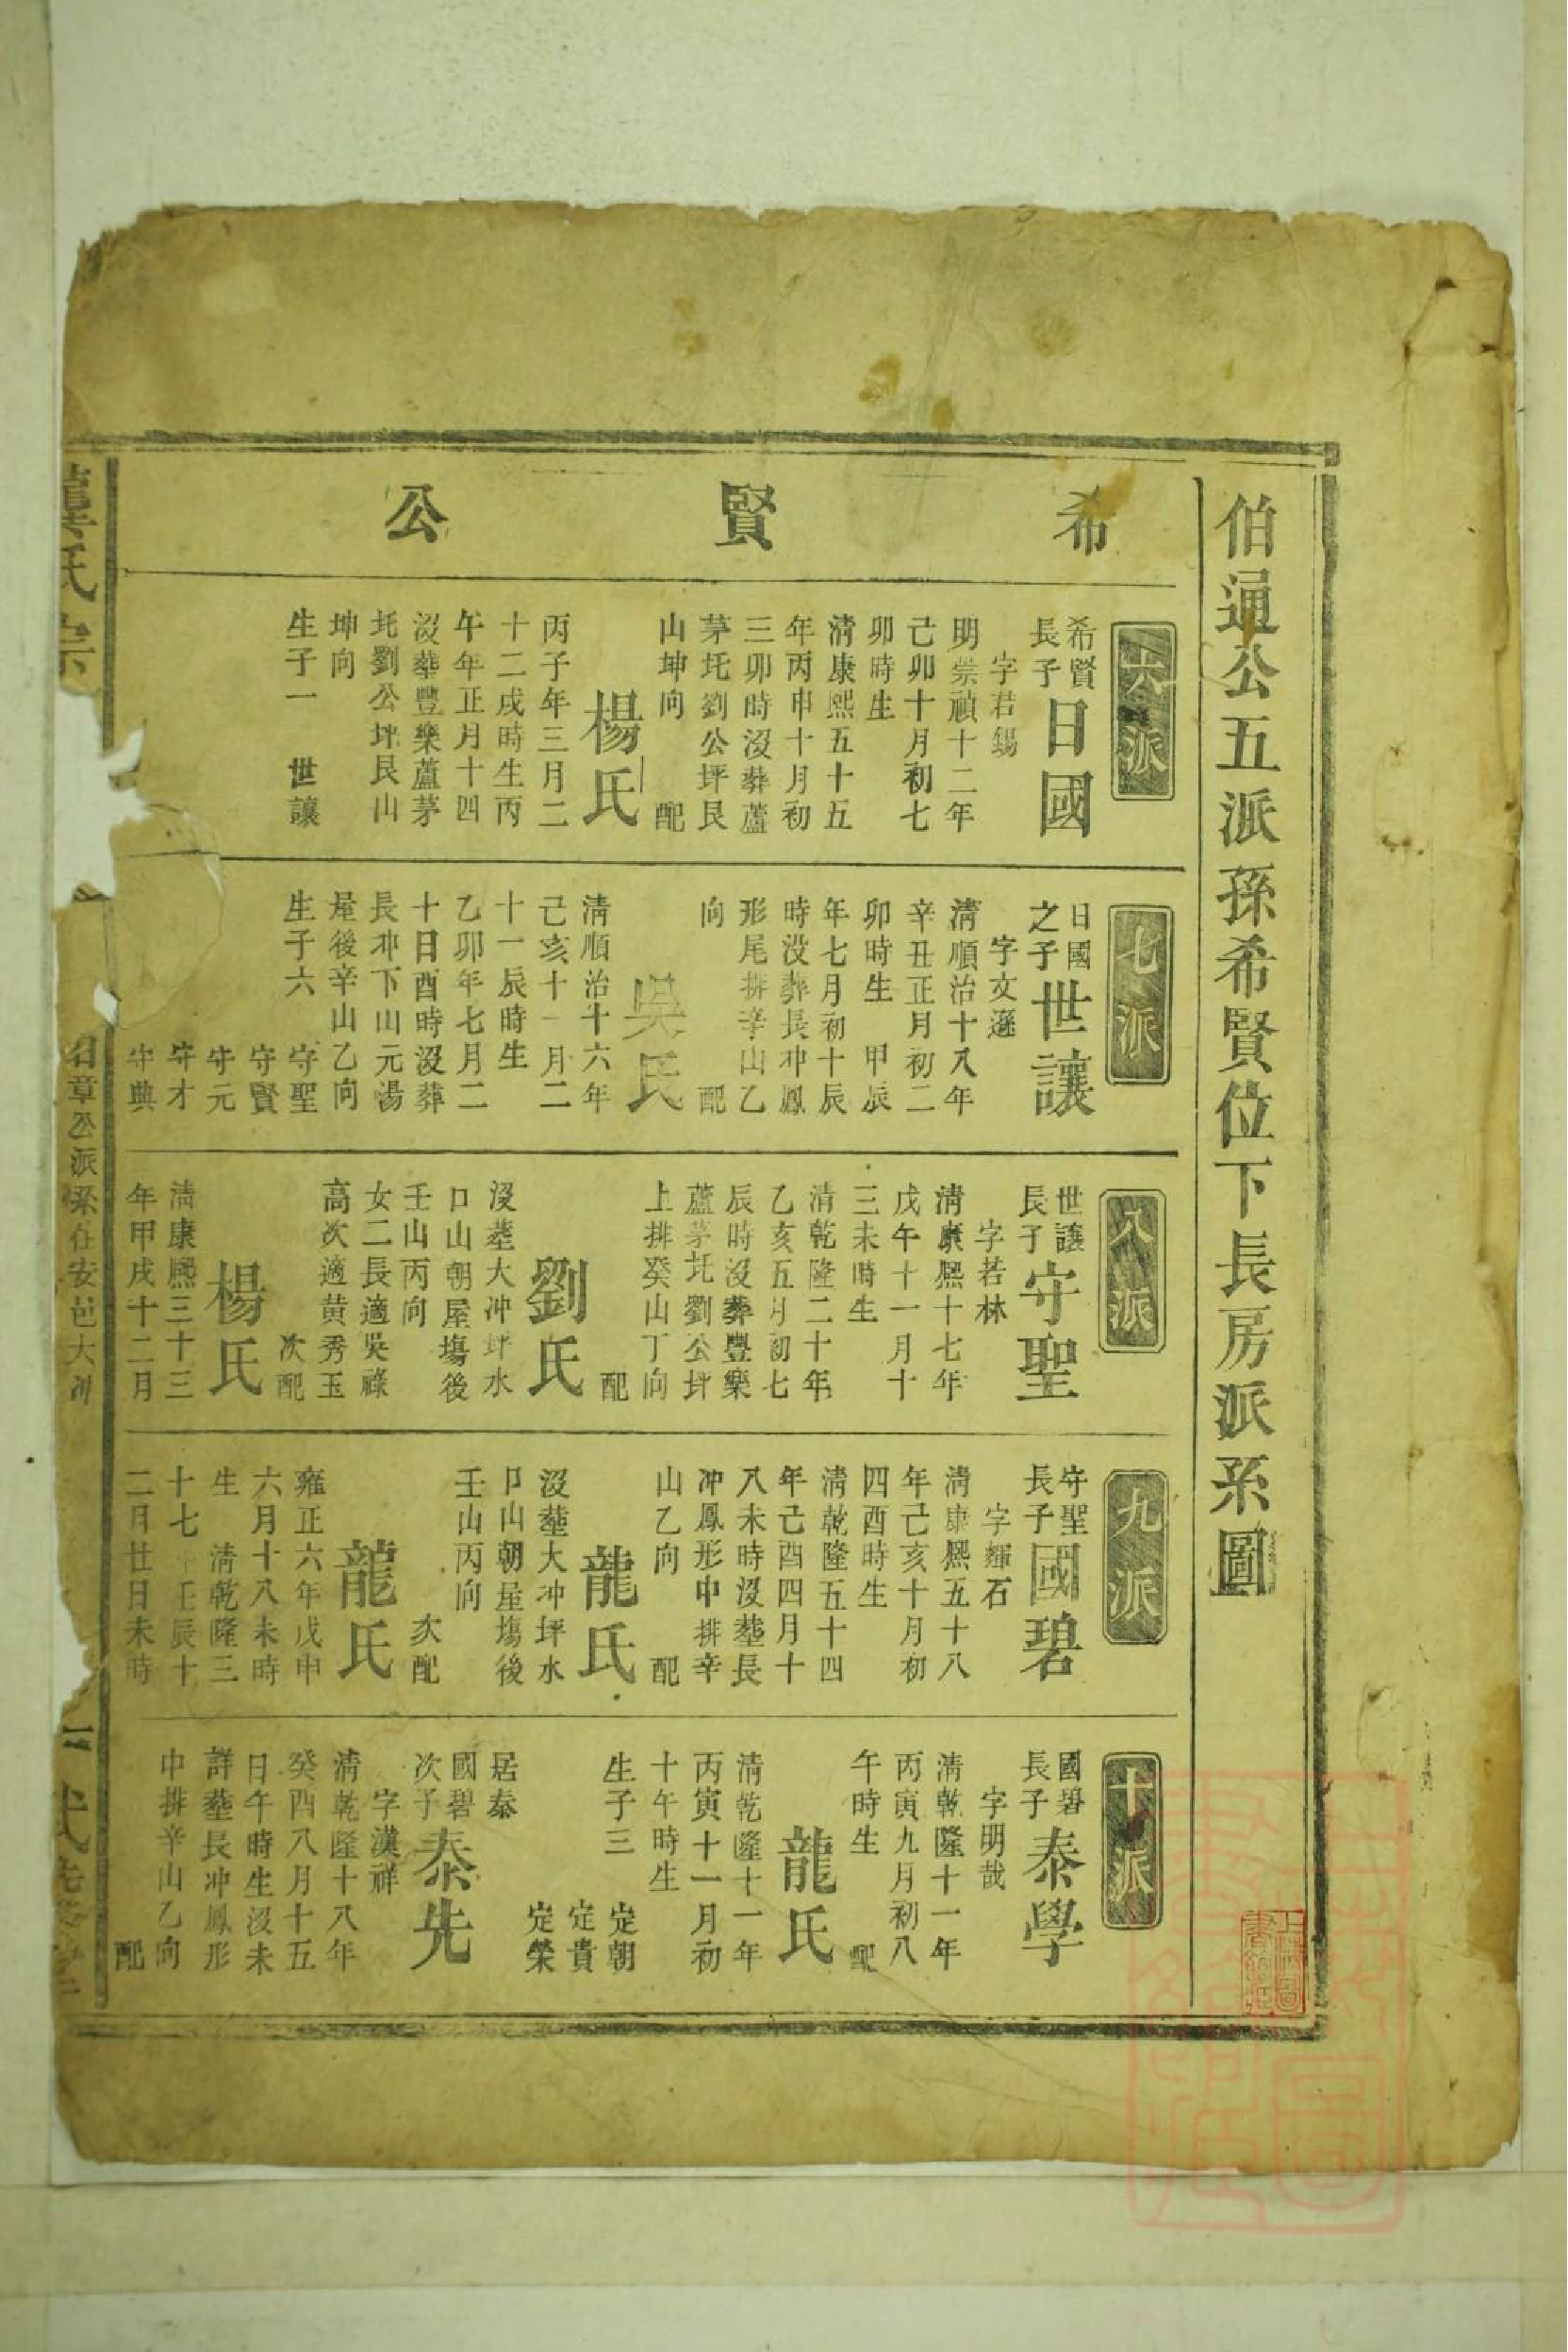 伯通公五派孫希賢位下長房派系圖
希賢公
六派
希賢
長子
日國
字君錫
明崇禎十二年
己卯十月初七
卯時生
清康熙五十五
年丙申十月初
三卯時沒葬蘆
茅圫劉公坪艮
山坤向 配
楊氏
丙子年三月二
十二戌時生丙
午年正月十四
沒塟豐樂蘆茅
圫劉公坪艮山
坤向
生子一 世讓
七派
日國
之子
世讓
字文遜
清順治十八年
辛丑正月初二
卯時生 甲辰
年七月初十辰
時沒葬長冲鳳
形尾排辛山乙
向 配
吳氏
清順治十六年
己亥十一月二
十一辰時生
乙卯年七月二
十日酉時沒葬
長冲下山元湯
屋後辛山乙向
生子六 守聖
守賢
守元
守才
守典
八派
世讓
長子
守聖
字若林
清康熙十七年
戊午十一月十
三未時生
清乾隆二十年
乙亥五月初七
辰時沒葬豐樂
蘆茅圫劉公坪
上排癸山丁向
配
劉氏
沒塟大冲坪水
口山朝屋塲後
壬山丙向
女二長適吳祿
高次適黃秀玉
次配
楊氏
清康熙三十三
年甲戌十二月
九派
守聖
長子
國碧
字輝石
清康熙五十八
年己亥十月初
四酉時生
清乾隆五十四
年己酉四月十
八未時沒塟長
冲鳳形中排辛
山乙向 配
龍氏
沒塟大冲坪水
口山朝屋塲後
壬山丙向
次配
龍氏
雍正六年戊申
六月十八未時
生 清乾隆三
十七年壬辰十
二月廿日未時
十派
國碧
長子
泰學
字明哉
清乾隆十一年
丙寅九月初八
午時生 配
龍氏
清乾隆十一年
丙寅十一月初
十午時生
生子三 定朝
定貴
定榮
居泰
國碧
次子
泰先
字漢祥
清乾隆十八年
癸酉八月十五
日午時生沒未
詳塟長冲鳳形
中排辛山乙向
配
龔氏宗
章公派梁在安邑大冲
上海圖書館藏